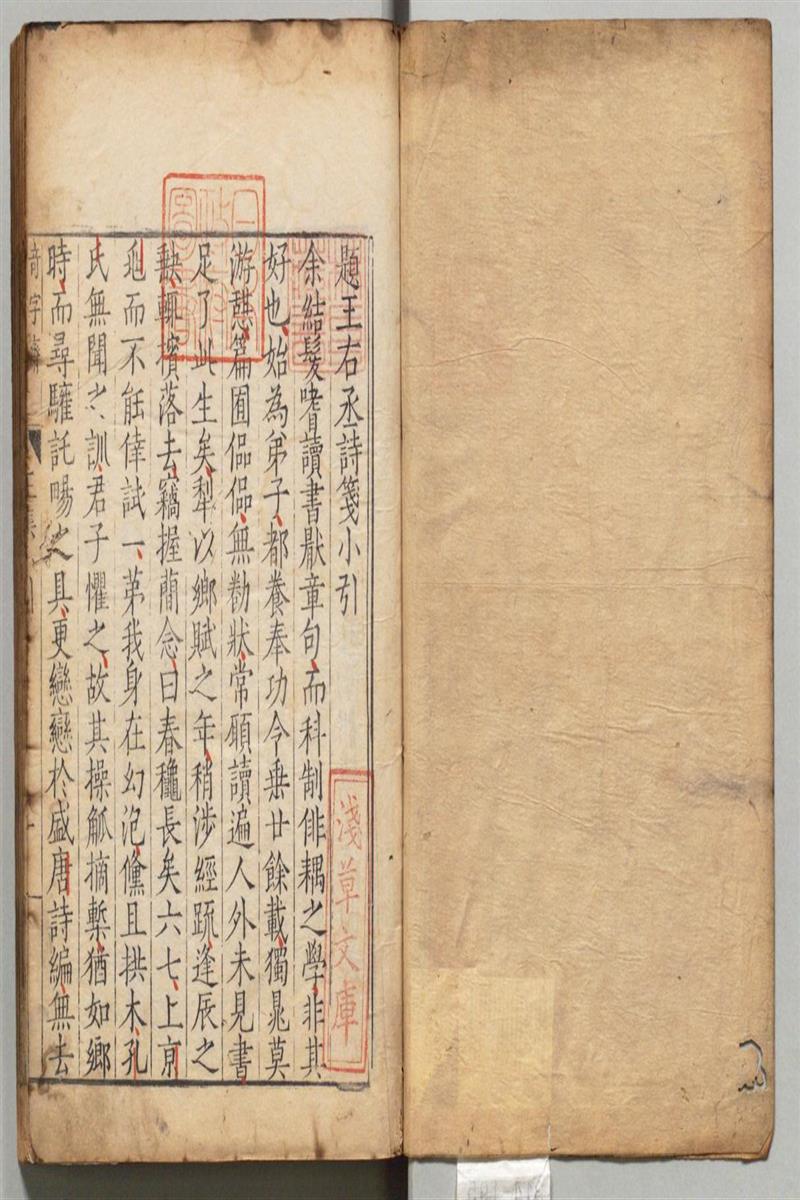 題王右丞詩箋小引
余結髮嗜讀書厭章句而科制俳耦之學非其
好也始為弟子都養奉功令垂廿餘載獨晁莫
游憇篇囿偘偘無勌狀常願讀遍人外未見書
足了此生矣犁以鄉賦之年稍涉經䟽逢辰之
輒擯落去竊握蕳念曰春穐長矣六七上京
而不能倖試一第我身在幻泡儻且拱木孔
氏無聞之訓君子懼之故其操觚摘槧猶如鄉
時而尋騅託暘之具更戀戀於盛唐詩編無去
淺草文庫